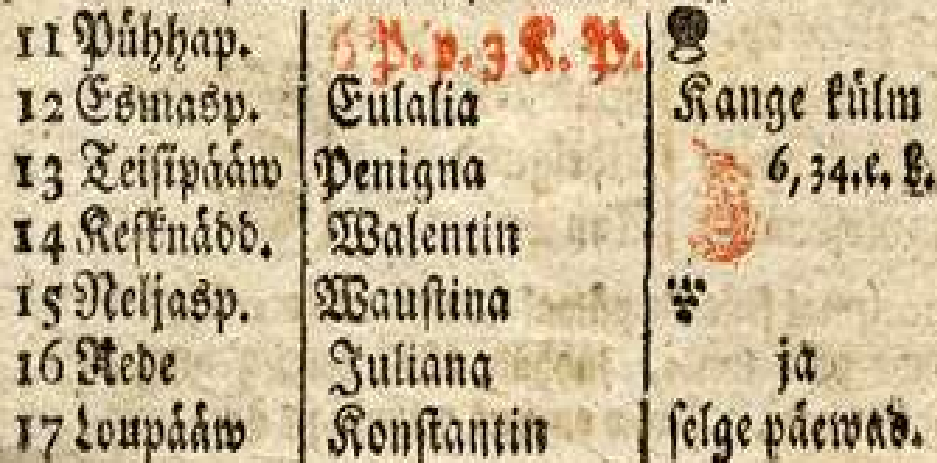 11 Pühhap. 6 P. p. 3 K. P.
12 Esmasp. Eulalia Kange külm
13 Teisipääw Penigna 6, 34. e. k.
14 Kesknädd. Walentin
15 Neljasp. Waustina
16 Rede Juliana ja
17 Loupääw Konstantin selge päewad.